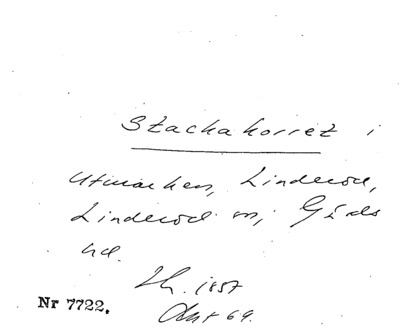 Stackakorret i
Utmarken, Linderöd,
Linderöd sn, Gärds
hd.
1857
Nr 7722. 69.